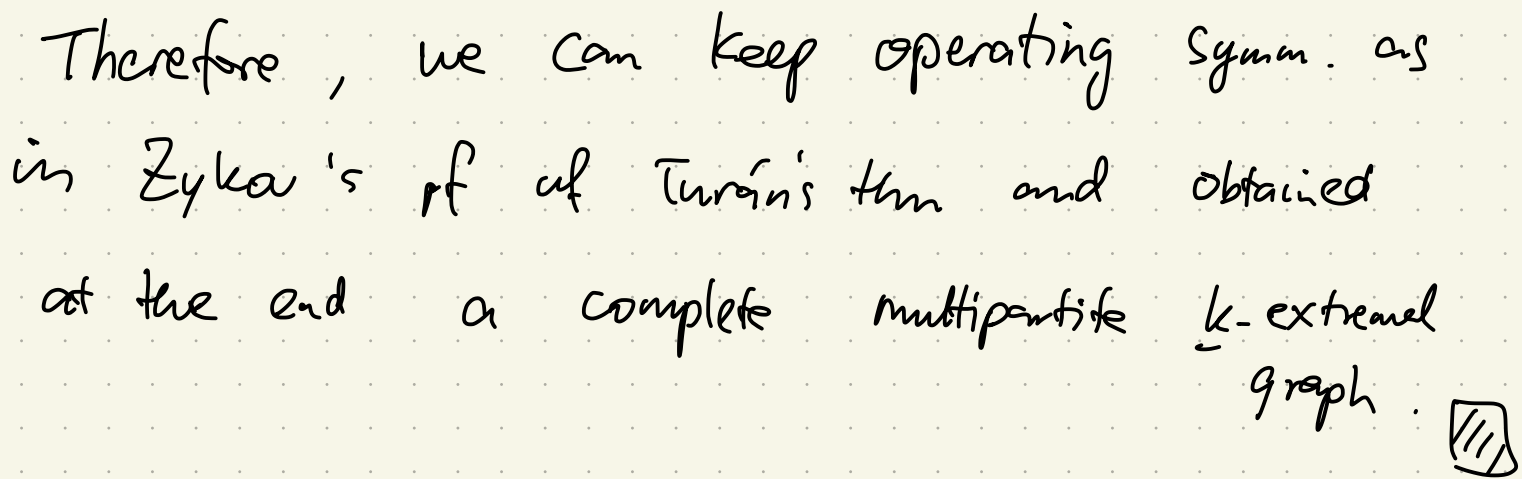 Therefore, we can keep operating symm. as
in Zyka's pf of Turán's thm and obtained
at the end a complete multipartite k-extremal
graph.